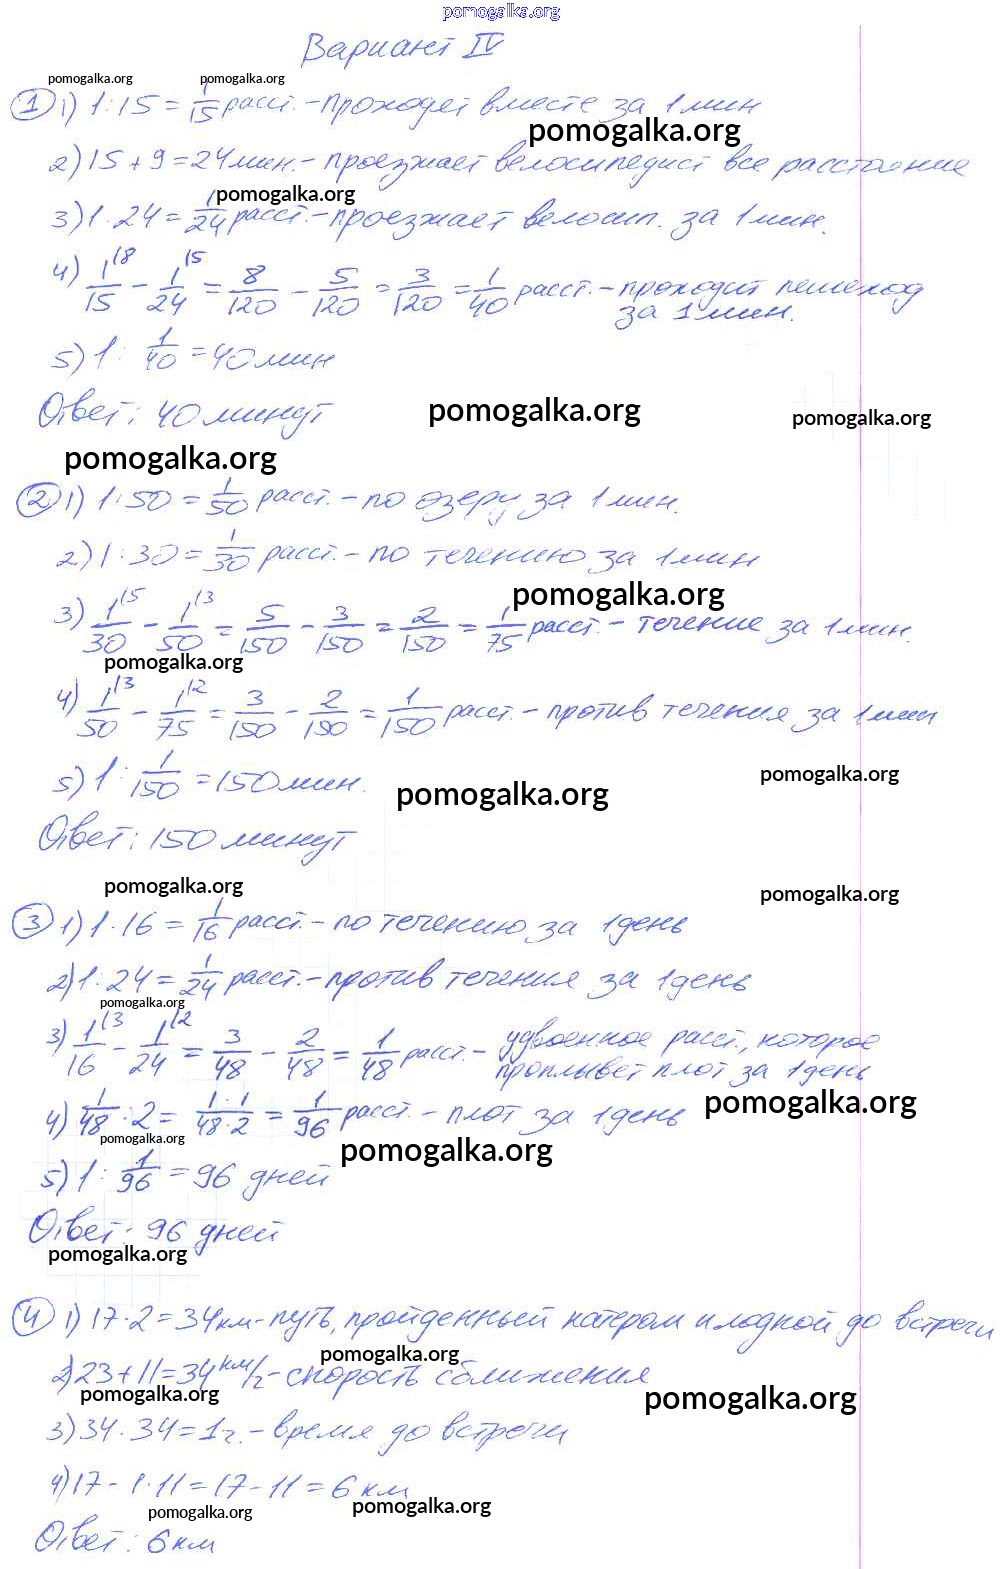 pomogalka.org
Вариант IV
pomogalka.org pomogalka.org
① 1) 1:15 = 1/15 расст. - проходят вместе за 1 мин
pomogalka.org
2) 15 + 9 = 24 мин. - проезжает велосипедист все расстояние
pomogalka.org
3) 1:24 = 1/24 расст. - проезжает велосип. за 1 мин.
4) 1/15 \8 - 1/24 \5 = 8/120 - 5/120 = 3/120 = 1/40 расст. - проходит пешеход
за 1 мин.
5) 1: 1/40 = 40 мин
Ответ: 40 минут
pomogalka.org pomogalka.org
pomogalka.org
② 1) 1:50 = 1/50 расст. - по озеру за 1 мин.
2) 1:30 = 1/30 расст. - по течению за 1 мин
pomogalka.org
3) 1/30 \5 - 1/50 \3 = 5/150 - 3/150 = 2/150 = 1/75 расст. - течение за 1 мин.
pomogalka.org
4) 1/50 \3 - 1/75 \2 = 3/150 - 2/150 = 1/150 расст. - против течения за 1 мин
5) 1: 1/150 = 150 мин.
pomogalka.org pomogalka.org
Ответ: 150 минут
pomogalka.org pomogalka.org
③ 1) 1:16 = 1/16 расст. - по течению за 1 день
2) 1:24 = 1/24 расст. - против течения за 1 день
pomogalka.org
3) 1/16 \3 - 1/24 \2 = 3/48 - 2/48 = 1/48 расст. - удвоенное расст., которое
проплывет плот за 1 день
4) 1/48 : 2 = 1·1/48·2 = 1/96 расст. - плот за 1 день
pomogalka.org
pomogalka.org pomogalka.org
5) 1: 1/96 = 96 дней
Ответ: 96 дней
pomogalka.org
④ 1) 17·2 = 34 км - путь, пройденный катером и лодкой до встречи
pomogalka.org
2) 23 + 11 = 34 км/г - скорость сближения
pomogalka.org pomogalka.org
3) 34:34 = 1 г. - время до встречи
4) 17 - 1·11 = 17 - 11 = 6 км
pomogalka.org pomogalka.org
Ответ: 6 км